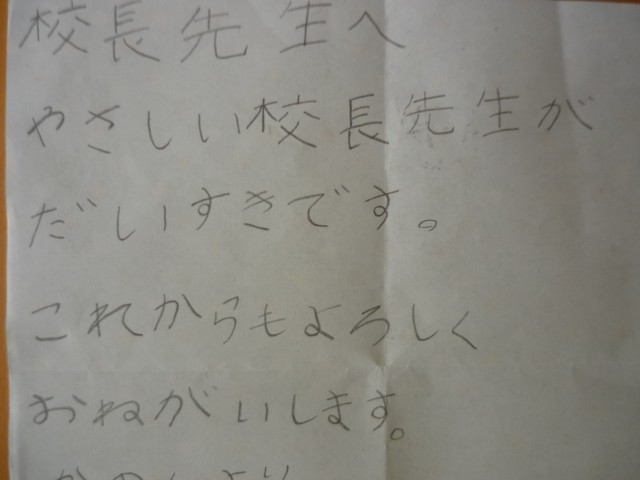 校長先生へ
やさしい校長先生が
だいすきです。
これからもよろしく
おねがいします。